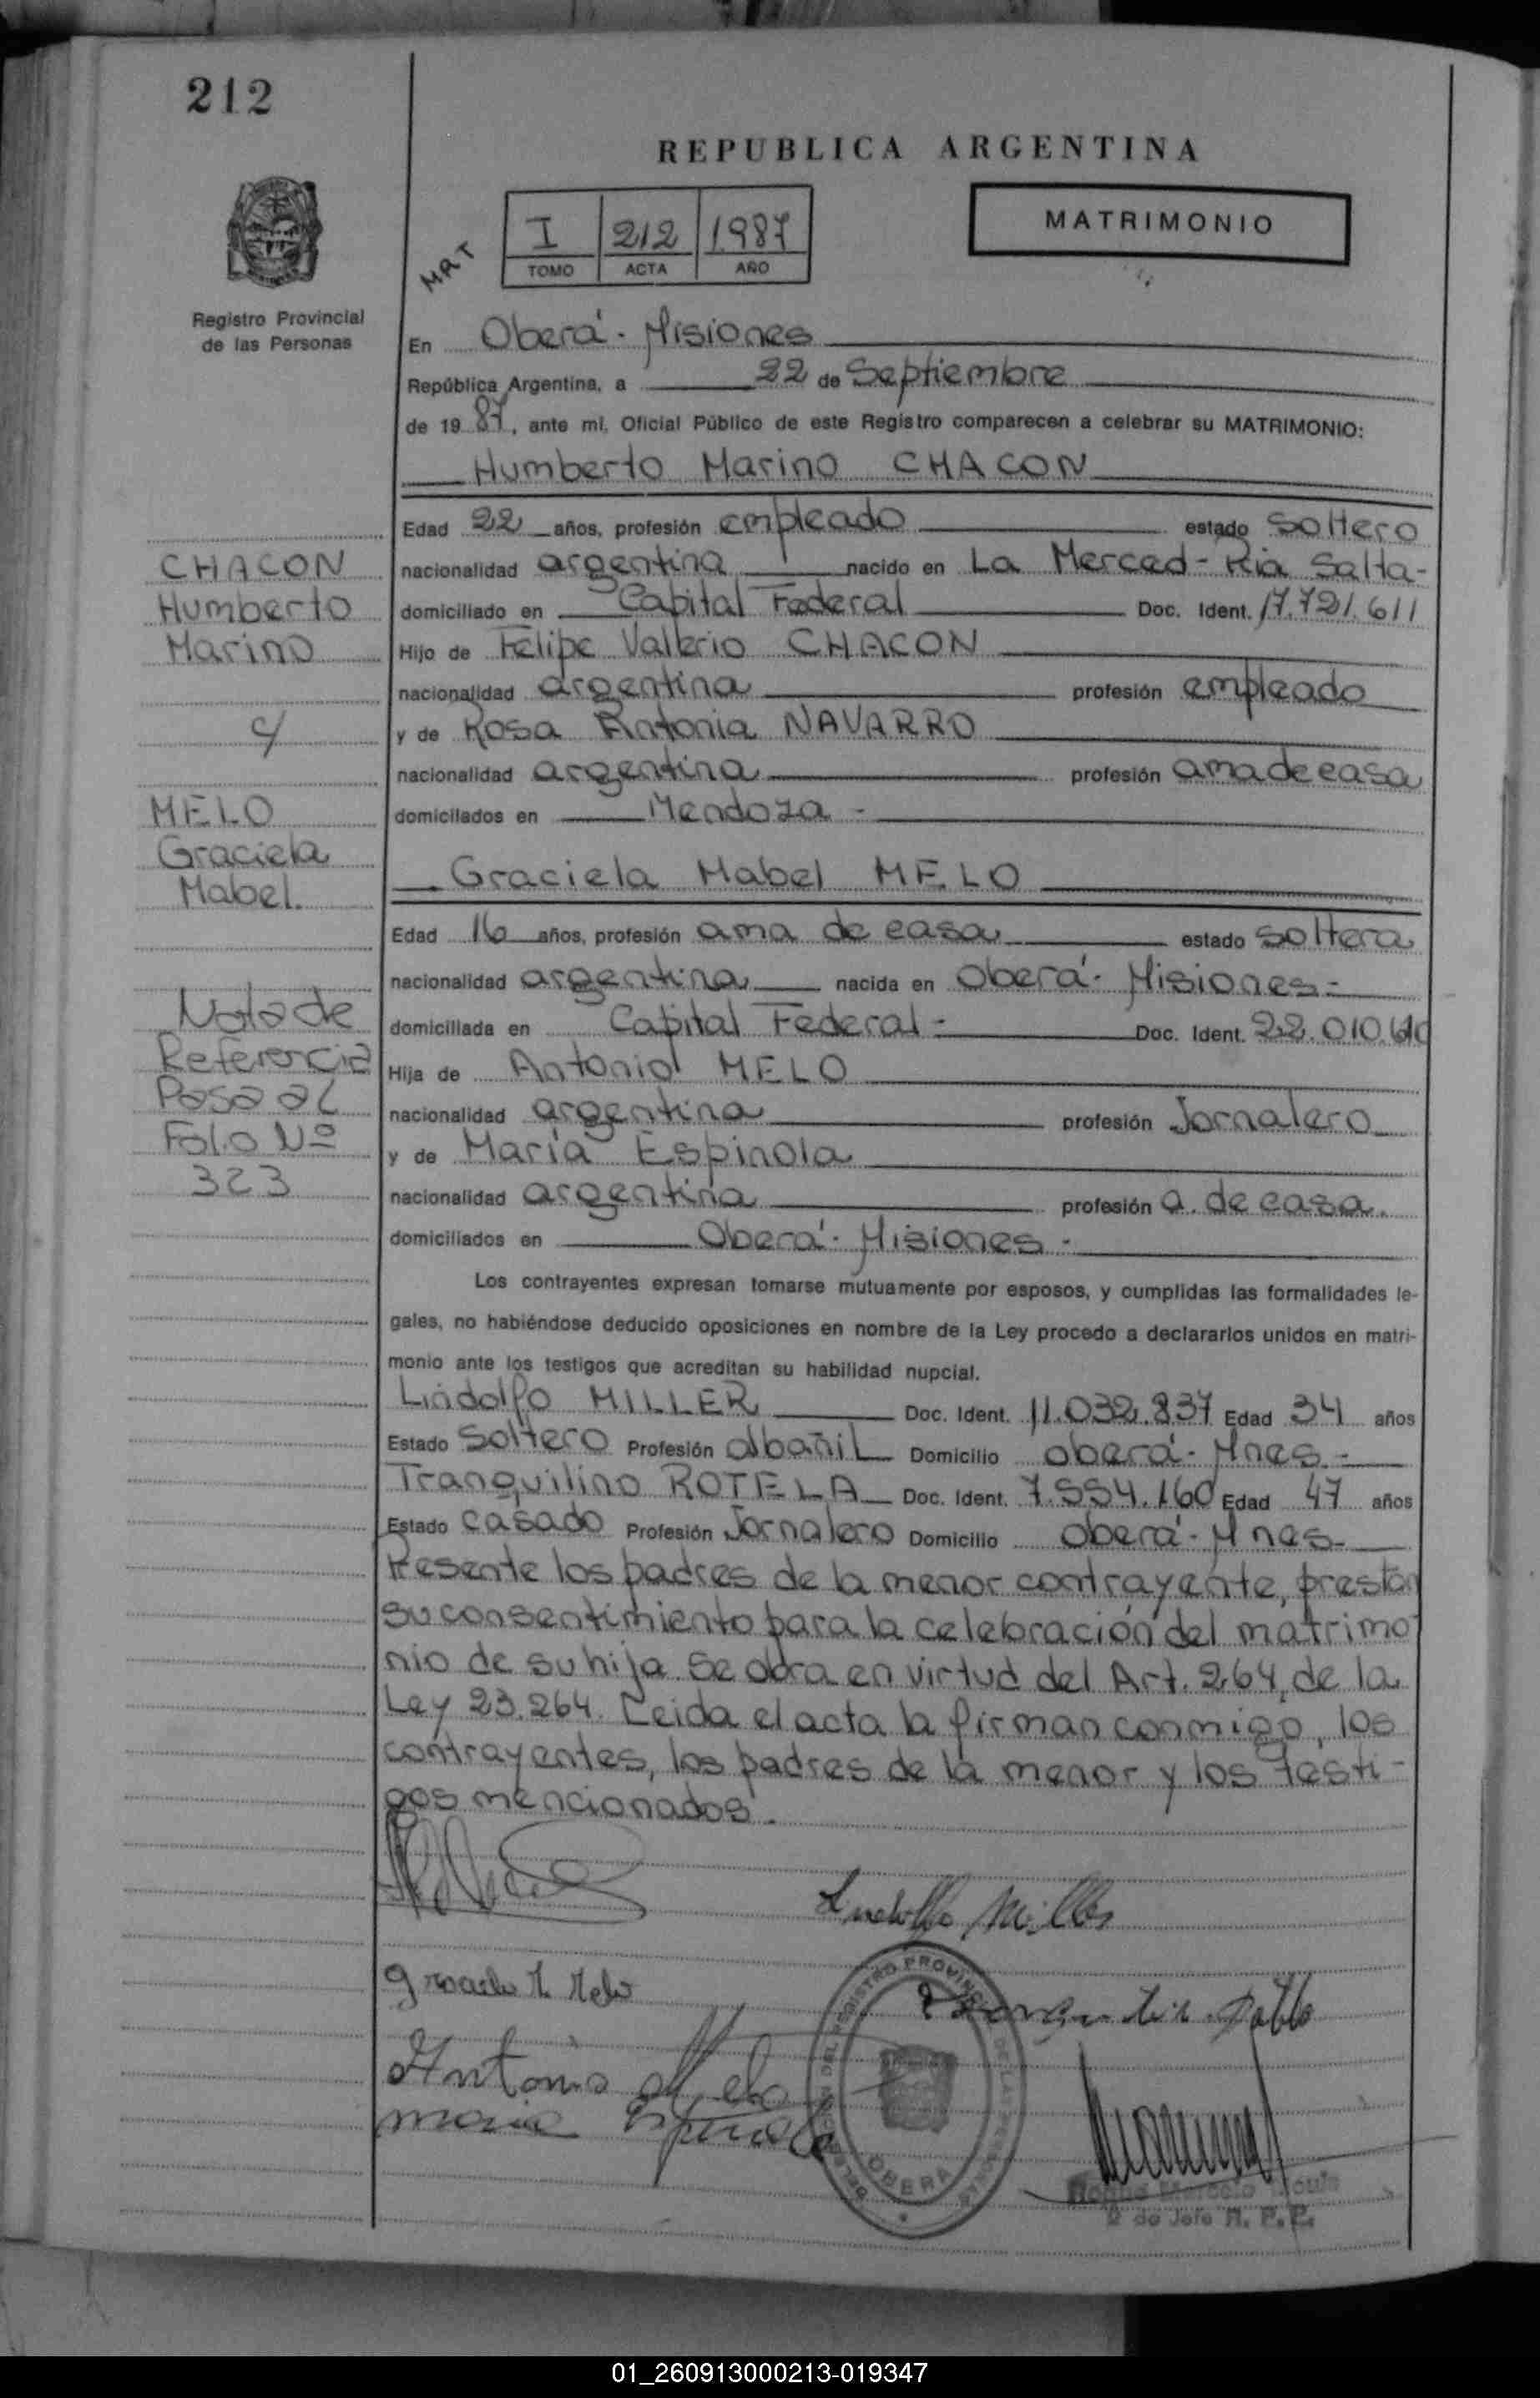 212
REPUBLICA ARGENTINA
MATRIMONIO
I 212 1987
TOMO ACTA AÑO
MRT
Registro Provincial
de las Personas
En Oberá - Misiones
República Argentina, a 22 de Septiembre
de 19 87, ante mi, Oficial Público de este Registro comparecen a celebrar su MATRIMONIO:
Humberto Marino CHACON
Edad 22 años, profesión empleado estado soltero
nacionalidad argentina nacido en La Merced - Pcia Salta-
domiciliado en Capital Federal Doc. Ident. 17.721.611
Hijo de Felipe Valerio CHACON
nacionalidad argentina profesión empleado
y de Rosa Antonia NAVARRO
nacionalidad argentina profesión ama de casa
domiciliados en Mendoza -
CHACON
Humberto
Marino
c/
MELO
Graciela
Mabel.
Nota de
Referencia
Pasa al
Folio Nº
323
Graciela Mabel MELO
Edad 16 años, profesión ama de casa estado soltera
nacionalidad argentina nacida en Oberá - Misiones -
domiciliada en Capital Federal - Doc. Ident. 22.010.610
Hija de Antonio MELO
nacionalidad argentina profesión Jornalero
y de María Espinola
nacionalidad argentina profesión a. de casa.
domiciliados en Oberá - Misiones -
Los contrayentes expresan tomarse mutuamente por esposos, y cumplidas las formalidades le-
gales, no habiéndose deducido oposiciones en nombre de la Ley procedo a declararlos unidos en matri-
monio ante los testigos que acreditan su habilidad nupcial.
Lindolfo MILLER Doc. Ident. 11.032.837 Edad 34 años
Estado Soltero Profesión albañil Domicilio oberá - Mnes -
Tranquilino ROTELA Doc. Ident. 7.554.160 Edad 47 años
Estado casado Profesión Jornalero Domicilio oberá - Mnes
Presente los padres de la menor contrayente, prestan
su consentimiento para la celebración del matrimo
nio de su hija. Se obra en virtud del Art. 264, de la
Ley 23.264. Leida el acta la firman conmigo, los
contrayentes, los padres de la menor y los testi-
gos mencionados.
Lindolfo Miller
Graciela M Melo
Antonio Melo
Maria Espinola
OBERA
2º de Jefe R. P. P.
01_260913000213-019347